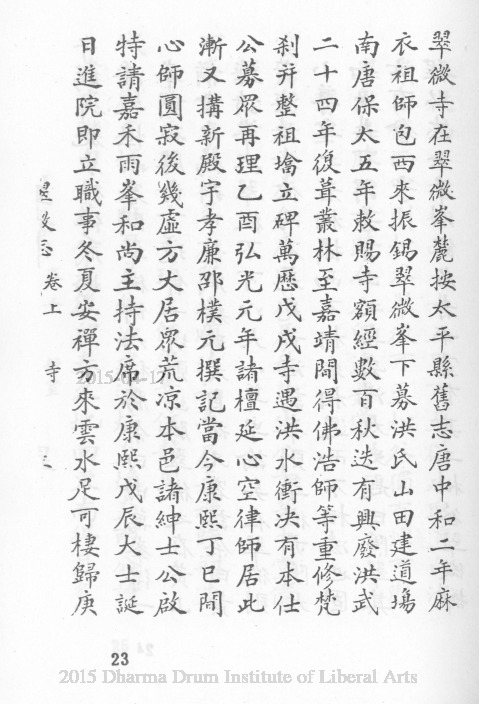 翠微寺在翠微峯麓按太平縣舊志唐中和二年麻
衣祖師包西來振錫翠微峯下募洪氏山田建道場
南唐保太五年敕賜寺額經數百秋迭有興廢洪武
二十四年復葺叢林至嘉靖間得佛浩師等重修梵
刹并整祖墖立碑萬歷戊戌寺遇洪水衝决有本仕
公募眾再理乙酉弘光元年諸檀延心空律師居此
漸又搆新殿宇孝廉邵樸元撰記當今康熙丁巳間
心師圓寂後幾虛方大居眾荒凉本邑諸紳士公啟
特請嘉禾雨峯和尚主持法席於康熙戊辰大士誕
日進院即立職事冬夏安禪方來雲水足可棲歸庚
卷上
寺
23
2015 Dharma Drum Institute of Liberal Arts